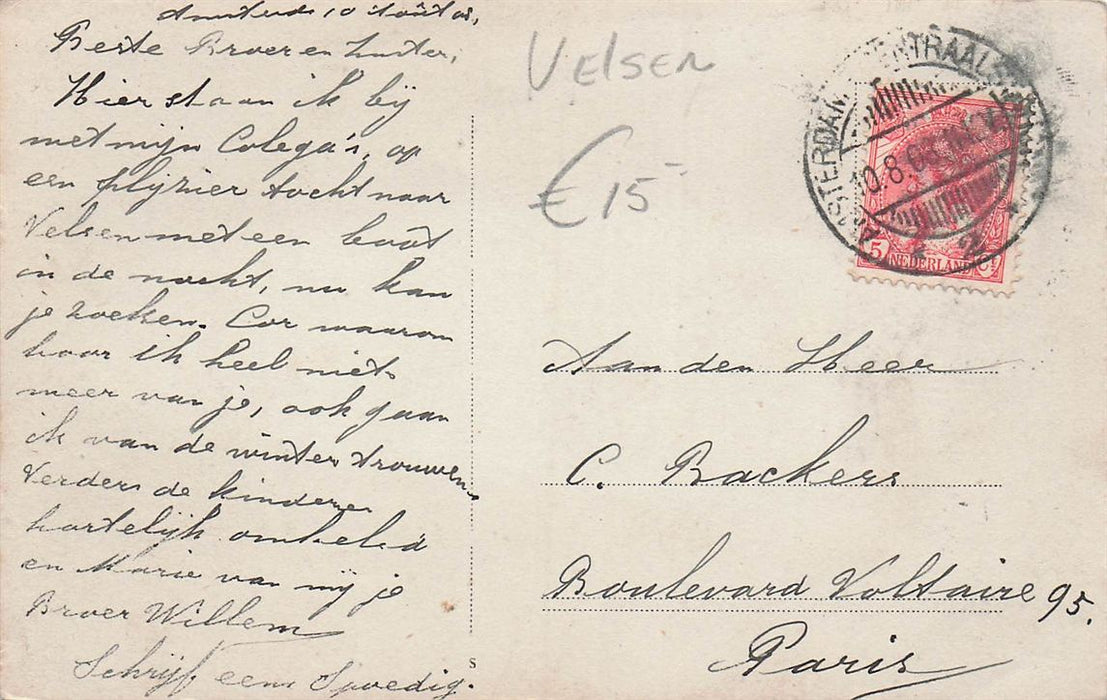 10
Beste Broer en Zuster,
Hier staan ik bij
met mijn Colega's, op
een plijzier tocht naar
Velsen met een boot
in de nacht, nu kan
je zoeken. Cor waarom
hoor ik heel niets
meer van je, ook gaan
ik van de winter trouwen
Verders de kinderen
hartelijk omhelsd
en Marie van mij je
Broer Willem
Schrijf eens Spoedig.
S
VELSEN
€ 15
AMSTERDAM CENTRAALST
10.8.08
5 NEDERLAND Ct
Aan den Heer
C. Backers
Boulevard Voltaire 95.
Paris